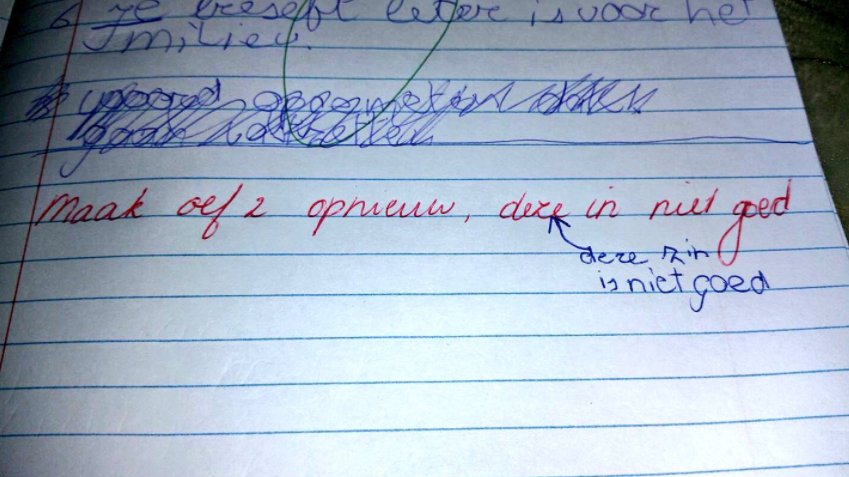 6 ze beseft beter is voor het
milieu.
Maak oef 2 opnieuw, deze in niet goed
deze zin
is niet goed